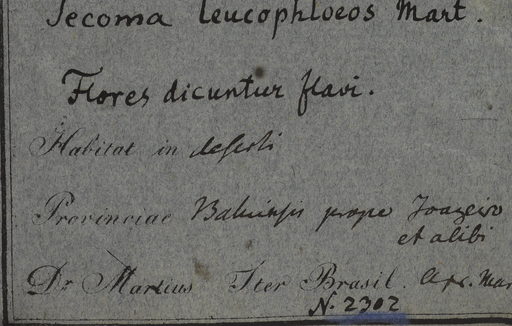 Tecoma leucophloeos Mart.
Flores dicuntur flavi.
Habitat in deserti
Provinciae Bahiensis prope Joazeiro
et alibi
Dr Martius Iter Brasil. Apr. Mar
N. 2302